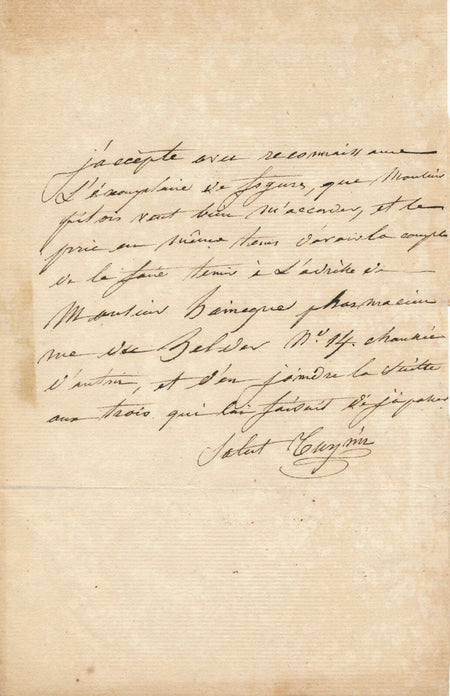 j'accepte avec reconnaissance
L'éxemplaire de figures, que Monsieur
filois veut bien m'accorder, et le
prie en même tems d'avoir la comple
de la faire tenir à L'adresse de
Monsieur pharmacien
rue de N.o 14. chaussée
d'antin, et d'en joindre la suitte
aux trois, qui lui
Salut